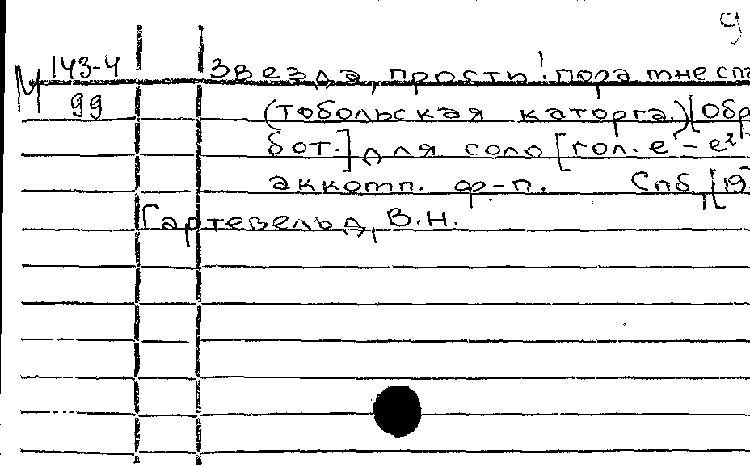 9
М 143-4
99
Звезда, прости! пора мне спа
(тобольская каторга.) [Обр
бот.] для соло [гол. е' – е²
аккомп. ф-п. Спб, [19
Гартевельд, В.Н.